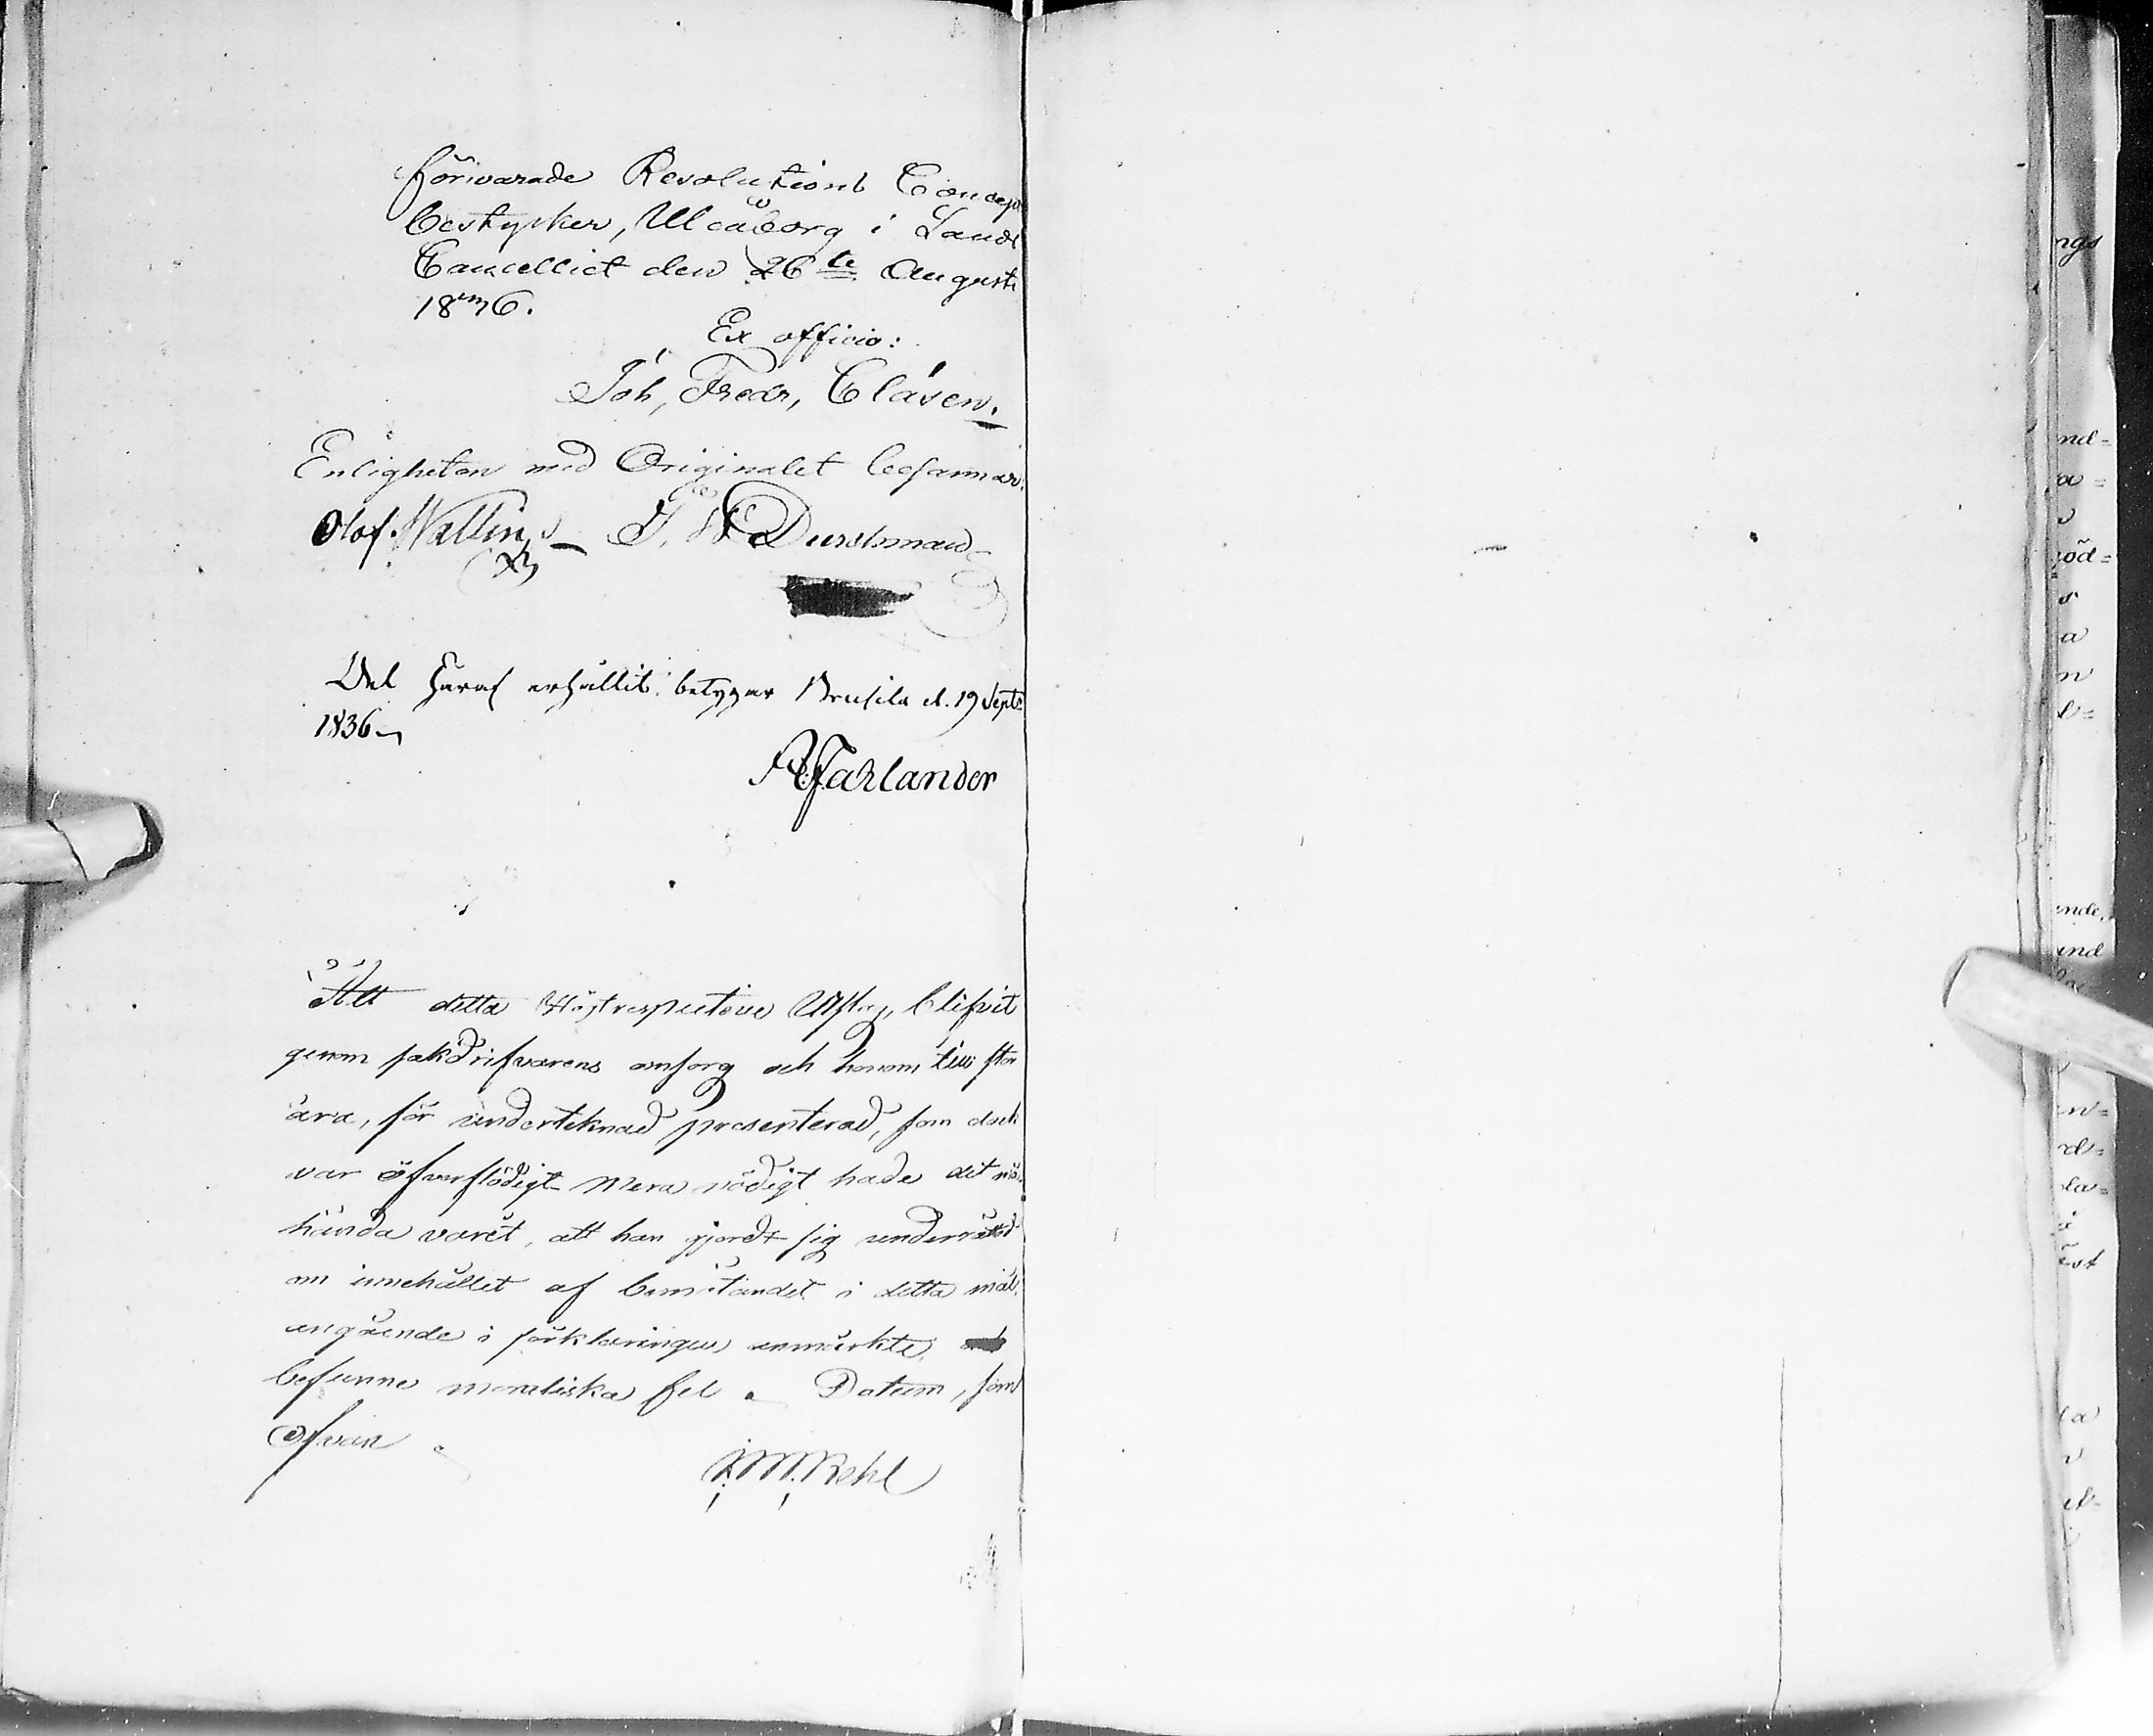 förvarade Resolutions Concep
bestyrker, Uleåborg i Lands
Cancelliet den 26te Augusti
1836.
Ex officio:
Joh, Fredr, Clásen.
Enligheten med Originalet besanna
Olof Wallin
Del häraf erhållit betygar d. 19 Sept
1836
Att detta Högtrespective Utslag, blifvit
genom sakdrifvarens omsorg och honom till stor
ära, för undertecknad presenterad, som dock
var öfverflödigt mera nödigt hade det
hända varit, att han gjordt sig underrättad
om innehållet af i detta mål
angående i förklaringen anmärkte
befunne moraliska fel. Datum, som
Ofvan
ngs
nd=
a=
öd=
s
a
n
nde,
und
n=
ds=
la=